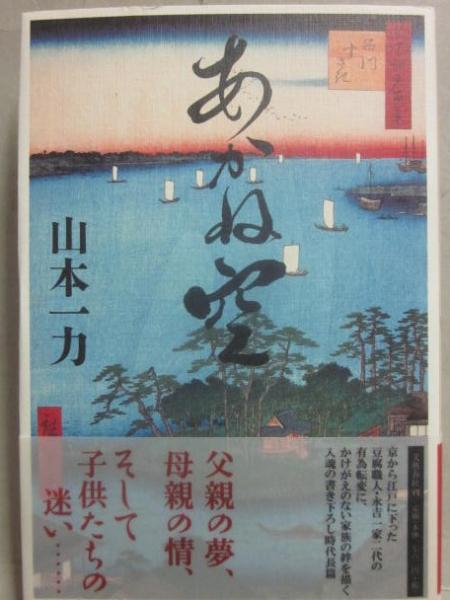 あかね空
山本一力
品川
すさき
父親の夢、
母親の情、
そして
子供たちの
迷い……
京から江戸に下った
豆腐職人・永吉一家二代の
有為転変に、
かけがえのない家族の絆を描く
入魂の書き下ろし時代長篇
文藝春秋刊